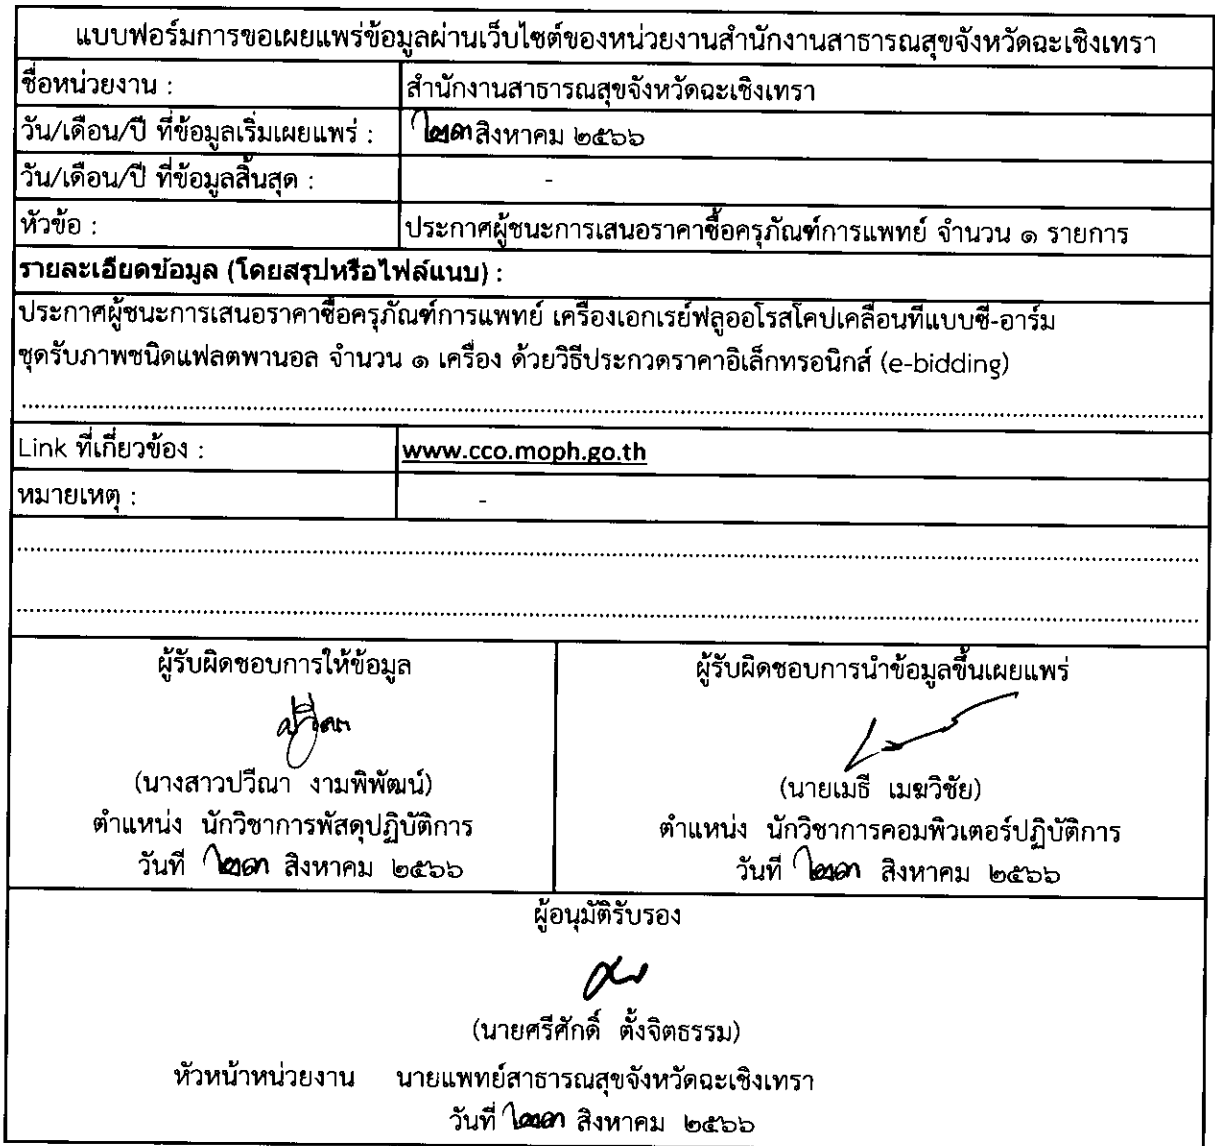 แบบฟอร์มการขอเผยแพร่ข้อมูลผ่านเว็บไซต์ของหน่วยงานสำนักงานสาธารณสุขจังหวัดฉะเชิงเทรา
ชื่อหน่วยงาน : สำนักงานสาธารณสุขจังหวัดฉะเชิงเทรา
วัน/เดือน/ปี ที่ข้อมูลเริ่มเผยแพร่ : สิงหาคม ๒๕๖๖
วัน/เดือน/ปี ที่ข้อมูลสิ้นสุด : -
หัวข้อ : ประกาศผู้ชนะการเสนอราคาซื้อครุภัณฑ์การแพทย์ จำนวน ๑ รายการ
รายละเอียดข้อมูล (โดยสรุปหรือไฟล์แนบ) :
ประกาศผู้ชนะการเสนอราคาซื้อครุภัณฑ์การแพทย์ เครื่องเอกเรย์ฟลูออโรสโคปเคลื่อนที่แบบซี-อาร์ม
ชุดรับภาพชนิดแฟลตพานอล จำนวน ๑ เครื่อง ด้วยวิธีประกวดราคาอิเล็กทรอนิกส์ (e-bidding)
Link ที่เกี่ยวข้อง : www.cco.moph.go.th
หมายเหตุ : -
ผู้รับผิดชอบการให้ข้อมูล ผู้รับผิดชอบการนำข้อมูลขึ้นเผยแพร่
(นางสาวปวีณา งามพิพัฒน์) (นายเมธี เมฆวิชัย)
ตำแหน่ง นักวิชาการพัสดุปฏิบัติการ ตำแหน่ง นักวิชาการคอมพิวเตอร์ปฏิบัติการ
วันที่ สิงหาคม ๒๕๖๖ วันที่ สิงหาคม ๒๕๖๖
ผู้อนุมัติรับรอง
(นายศรีศักดิ์ ตั้งจิตธรรม)
หัวหน้าหน่วยงาน นายแพทย์สาธารณสุขจังหวัดฉะเชิงเทรา
วันที่ สิงหาคม ๒๕๖๖